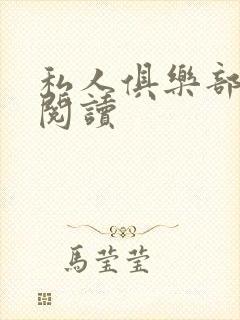 私人俱樂部
閱讀
馬瑩瑩